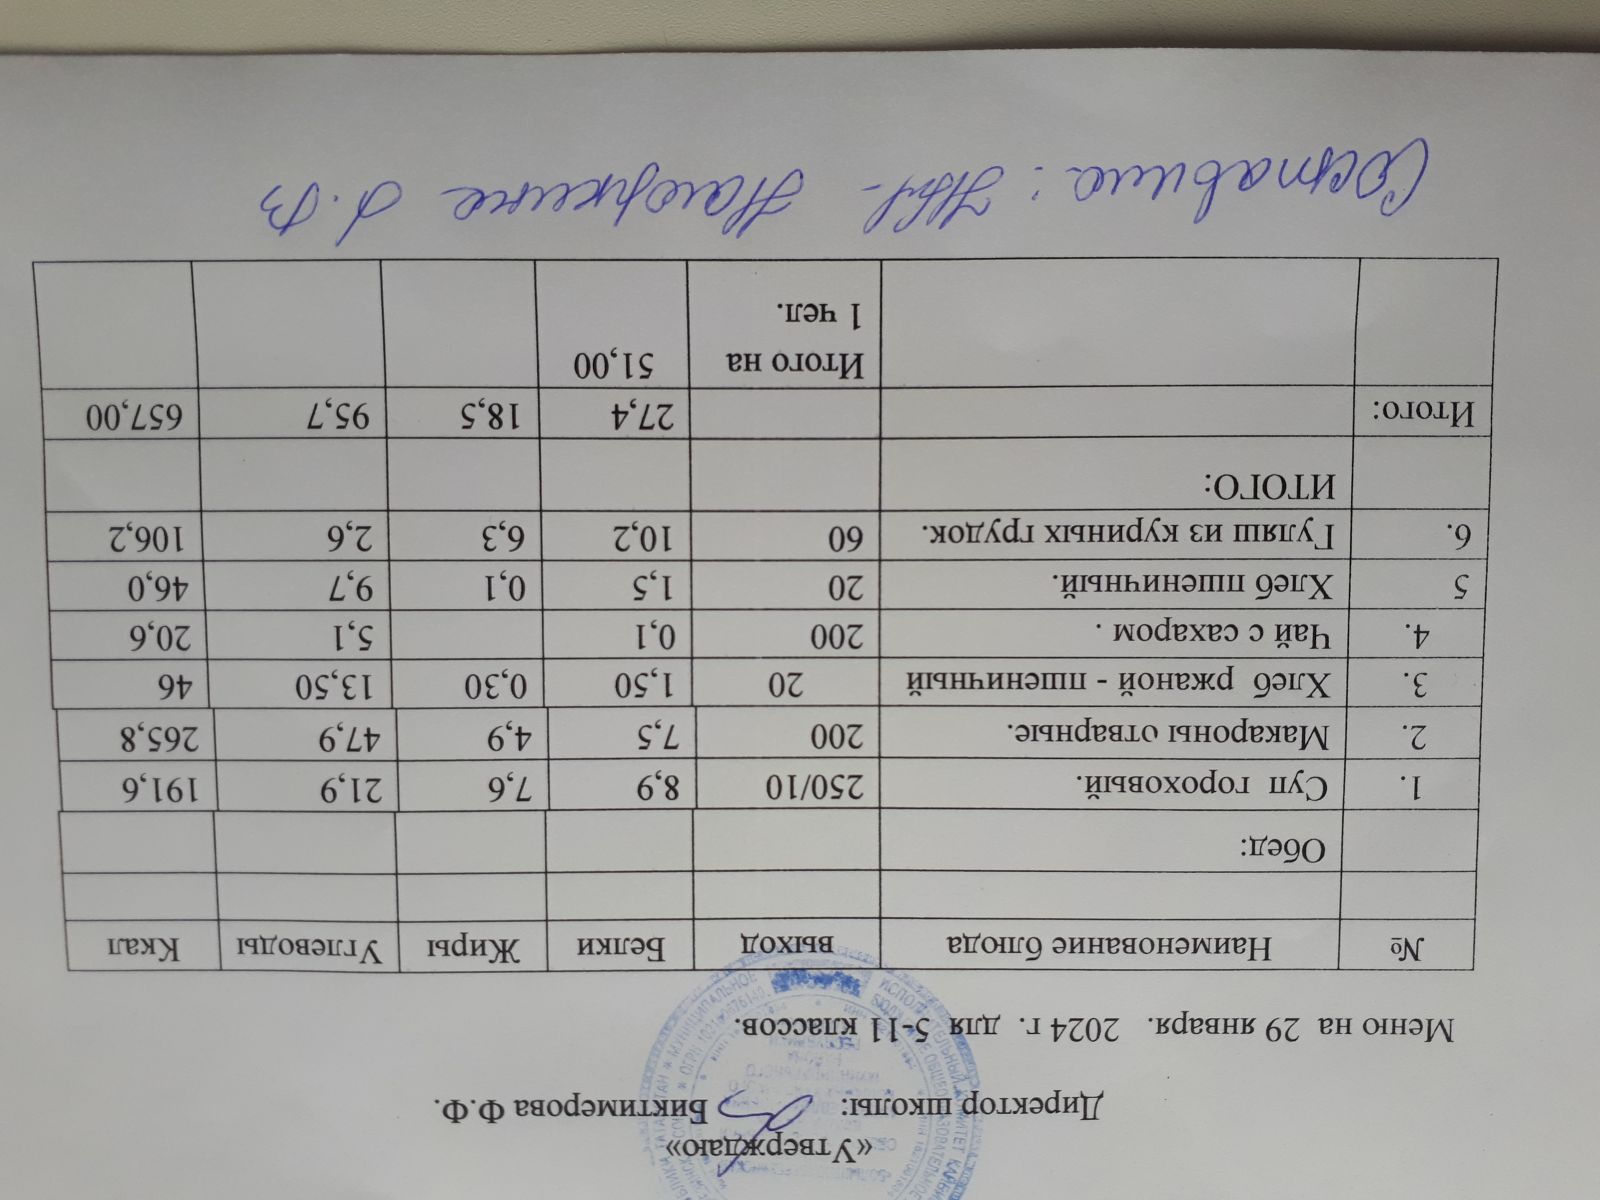 «Утверждаю»
Директор школы: Биктимерова Ф.Ф.
Меню на 29 января. 2024 г. для 5-11 классов.
№ Наименование блюда выход Белки Жиры Углеводы Ккал
Обед:
1. Суп гороховый. 250/10 8,9 7,6 21,9 191,6
2. Макароны отварные. 200 7,5 4,9 47,9 265,8
3. Хлеб ржаной - пшеничный 20 1,50 0,30 13,50 46
4. Чай с сахаром . 200 0,1 5,1 20,6
5 Хлеб пшеничный. 20 1,5 0,1 9,7 46,0
6. Гуляш из куриных грудок. 60 10,2 6,3 2,6 106,2
ИТОГО:
Итого: 27,4 18,5 95,7 657,00
Итого на 51,00
1 чел.
Составила: